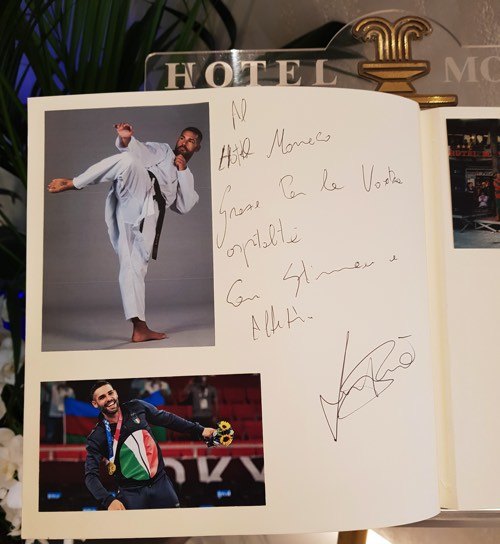 HOTEL MO
Al
Hotel Monaco
Grazie Per la Vostra
ospitalità
Con Stima e
Affetto